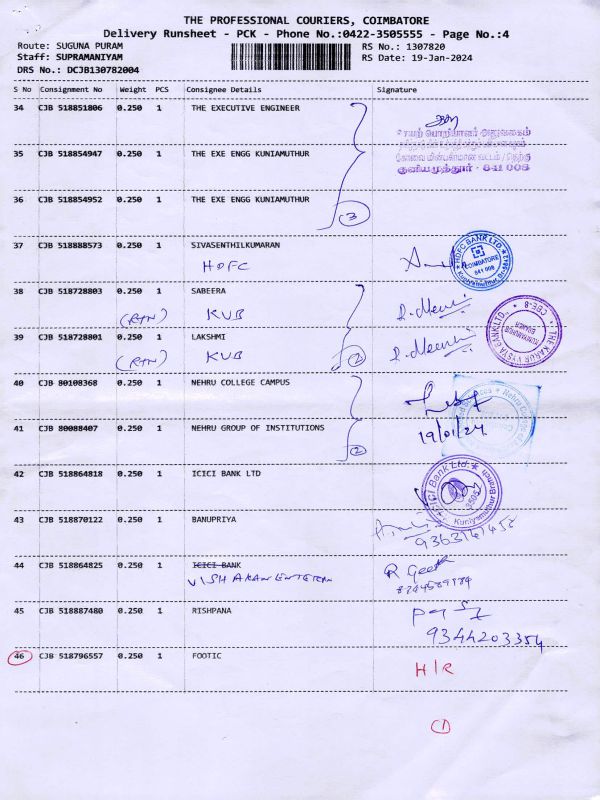 THE PROFESSIONAL COURIERS, COIMBATORE
Delivery Runsheet - PCK - Phone No.:0422-3505555 - Page No.:4
Route: SUGUNA PURAM RS No.: 1307820
Staff: SUPRAMANIYAM RS Date: 19-Jan-2024
DRS No.: DCJB130782004
S No Consignment No Weight PCS Consignee Details Signature
34 CJB 518851806 0.250 1 THE EXECUTIVE ENGINEER
35 CJB 518854947 0.250 1 THE EXE ENGG KUNIAMUTHUR
குனியமுத்தூர் - 641 008
36 CJB 518854952 0.250 1 THE EXE ENGG KUNIAMUTHUR
3
37 CJB 518888573 0.250 1 SIVASENTHILKUMARAN
HDFC
HDFC BANK LTD.
COIMBATORE
641 008
38 CJB 518728803 0.250 1 SABEERA
(RTN) KVB
39 CJB 518728801 0.250 1 LAKSHMI
(RTN) KVB 2
THE KARUR VYSYA BANK LTD., CBE-8
40 CJB 80108368 0.250 1 NEHRU COLLEGE CAMPUS
41 CJB 80088407 0.250 1 NEHRU GROUP OF INSTITUTIONS
19/01/24
2
42 CJB 518864818 0.250 1 ICICI BANK LTD
ICICI Bank Ltd.
Kuniyamuthur Branch
43 CJB 518870122 0.250 1 BANUPRIYA
44 CJB 518864825 0.250 1 ICICI BANK
R Geetha
45 CJB 518887480 0.250 1 RISHPANA
9344203354
46 CJB 518796557 0.250 1 FOOTIC
H/R
1